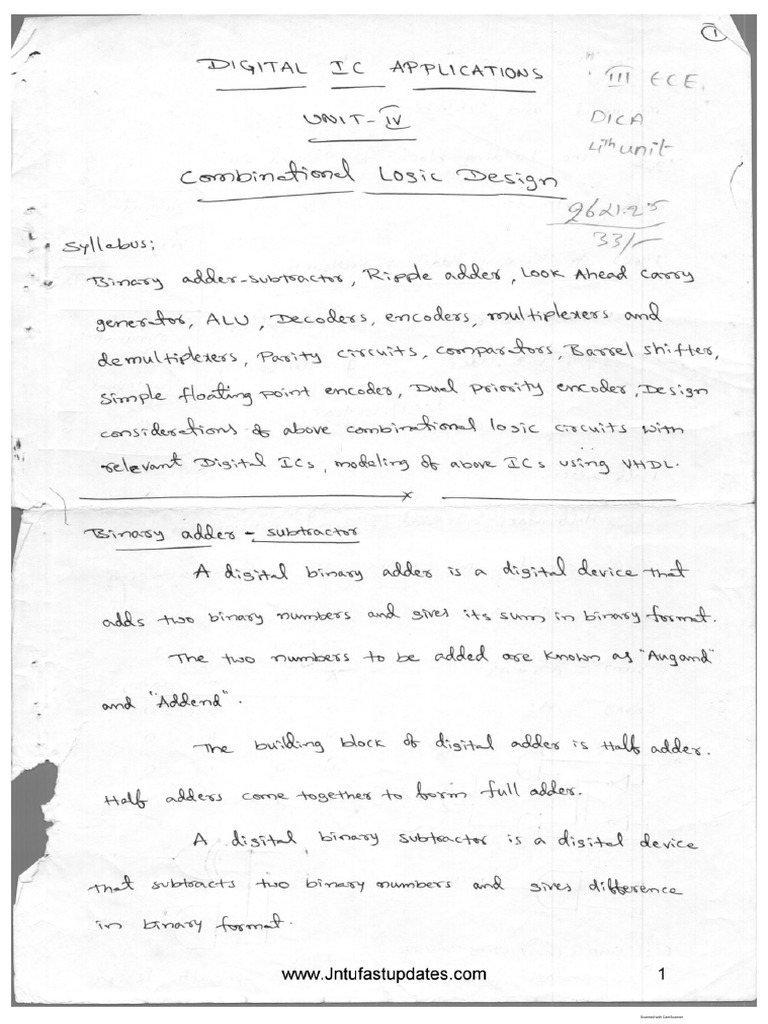 1
DIGITAL IC APPLICATIONS
III ECE.
UNIT-IV
DICA
4th unit
Combinational Logic Design
33/-
Syllabus:
Binary adder-subtractor, Ripple adder, Look Ahead Carry
generator, ALU, Decoders, encoders, multiplexers and
demultiplexers, Parity circuits, comparators, Barrel shifter,
Simple floating point encoder, Dual priority encoder, Design
considerations of above combinational logic circuits with
relevant Digital ICs, modeling of above ICs using VHDL.
Binary adder - subtractor
A digital binary adder is a digital device that
adds two binary numbers and gives its sum in binary format.
The two numbers to be added are known as "Augand"
and "Addend".
The building block of digital adder is Half adder.
Half adders come together to form full adder.
A digital binary subtractor is a digital device
that subtracts two binary numbers and gives difference
in binary format.
www.Jntufastupdates.com 1
Scanned with CamScanner